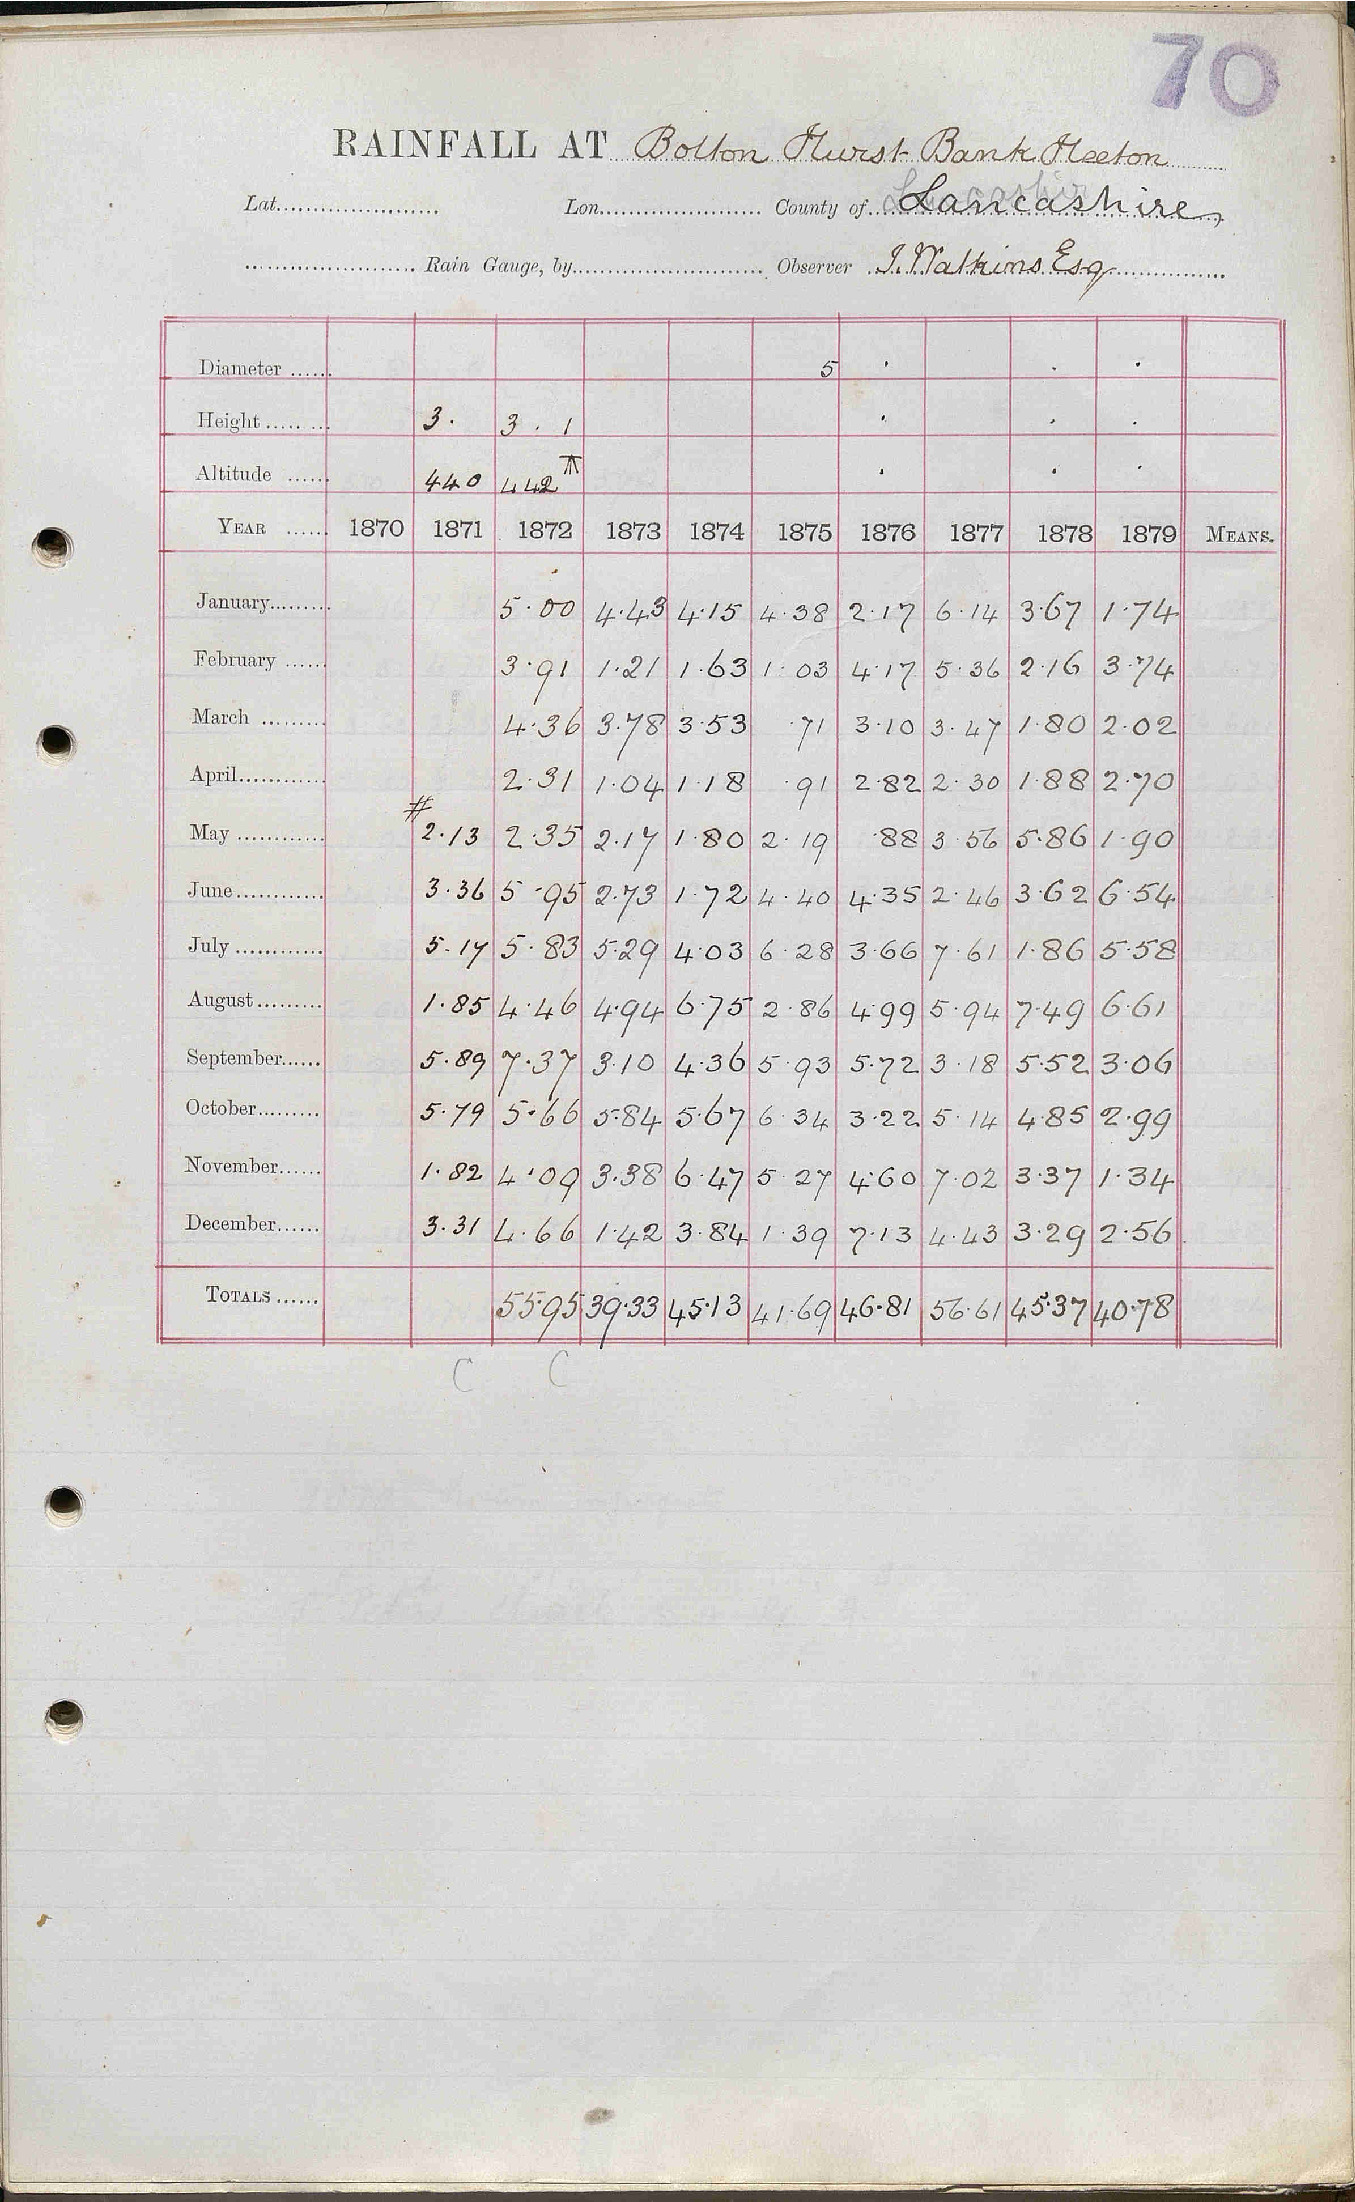 70
RAINFALL AT Bolton Hurst Bank Heeton
Lat. Lon. County of Lancashire
Rain Gauge, by Observer J. Watkins Esq
Diameter 5 · · ·
Height 3. 3 . 1 · · ·
Altitude 440 442 · · ·
YEAR 1870 1871 1872 1873 1874 1875 1876 1877 1878 1879 MEANS.
January 5·00 4·43 4·15 4·38 2·17 6·14 3·67 1·74
February 3·91 1·21 1·63 1·03 4·17 5·36 2·16 3·74
March 4·36 3·78 3·53 ·71 3·10 3·47 1·80 2·02
April 2·31 1·04 1·18 ·91 2·82 2·30 1·88 2·70
#
May 2·13 2·35 2·17 1·80 2·19 ·88 3·56 5·86 1·90
June 3·36 5·95 2·73 1·72 4·40 4·35 2·46 3·62 6·54
July 5·17 5·83 5·29 4·03 6·28 3·66 7·61 1·86 5·58
August 1·85 4·46 4·94 6·75 2·86 4·99 5·94 7·49 6·61
September 5·89 7·37 3·10 4·36 5·93 5·72 3·18 5·52 3·06
October 5·79 5·66 5·84 5·67 6·34 3·22 5·14 4·85 2·99
November 1·82 4·09 3·38 6·47 5·27 4·60 7·02 3·37 1·34
December 3·31 4·66 1·42 3·84 1·39 7·13 4·43 3·29 2·56
TOTALS 55·95 39·33 45·13 41·69 46·81 56·61 45·37 40·78
C C